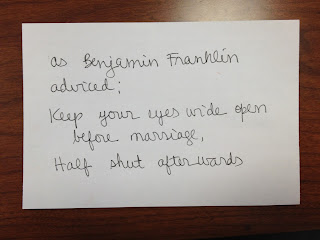 as Benjamin Franklin
adviced;
Keep your eyes wide open
before marriage,
Half shut afterwards